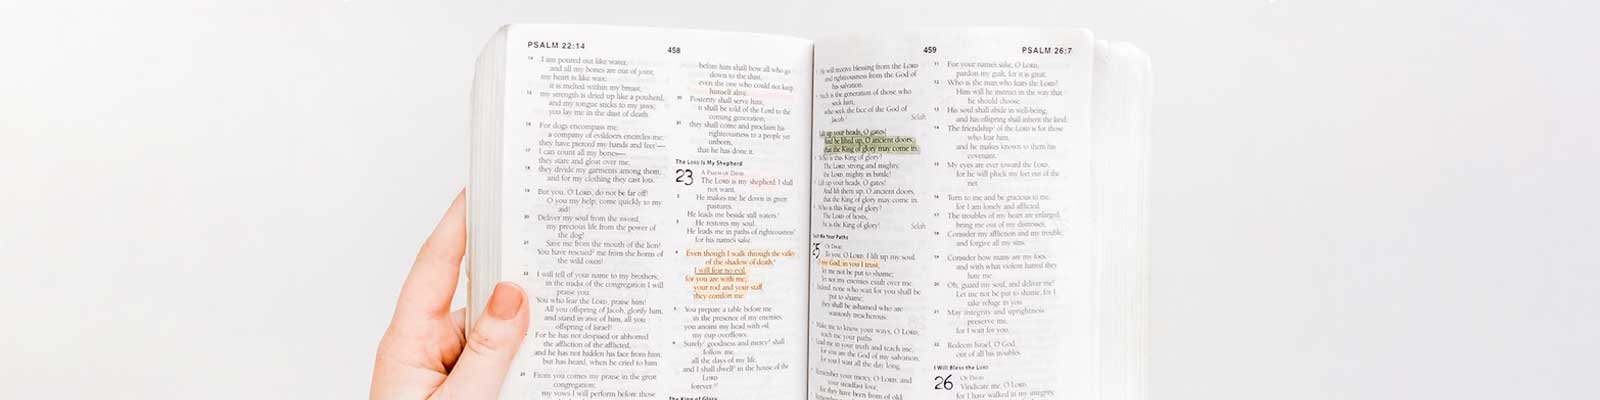 PSALM 22:14
458
14 I am poured out like water,
and all my bones are out of joint;
my heart is like wax;
it is melted within my breast;
15 my strength is dried up like a potsherd,
and my tongue sticks to my jaws;
you lay me in the dust of death.
16 For dogs encompass me;
a company of evildoers encircles me;
they have pierced my hands and feet—
17 I can count all my bones—
they stare and gloat over me;
18 they divide my garments among them,
and for my clothing they cast lots.
19 But you, O LORD, do not be far off!
O you my help, come quickly to my
aid!
20 Deliver my soul from the sword,
my precious life from the power of
the dog!
21 Save me from the mouth of the lion!
You have rescued me from the horns of
the wild oxen!
22 I will tell of your name to my brothers;
in the midst of the congregation I will
praise you:
You who fear the LORD, praise him!
All you offspring of Jacob, glorify him,
and stand in awe of him, all you
offspring of Israel!
For he has not despised or abhorred
the affliction of the afflicted,
and he has not hidden his face from him,
but has heard, when he cried to him.
25 From you comes my praise in the great
congregation;
my vows I will perform before those
before him shall bow all who go
down to the dust,
even the one who could not keep
himself alive.
30 Posterity shall serve him;
it shall be told of the Lord to the
coming generation;
31 they shall come and proclaim his
righteousness to a people yet
unborn,
that he has done it.
The LORD Is My Shepherd
23 A PSALM OF DAVID.
The LORD is my shepherd; I shall
not want.
2 He makes me lie down in green
pastures.
He leads me beside still waters.
3 He restores my soul.
He leads me in paths of righteousness
for his name's sake.
4 Even though I walk through the valley
of the shadow of death,
I will fear no evil,
for you are with me;
your rod and your staff,
they comfort me.
5 You prepare a table before me
in the presence of my enemies;
you anoint my head with oil;
my cup overflows.
6 Surely goodness and mercy shall
follow me
all the days of my life,
and I shall dwell in the house of the
LORD
forever.
The King of Glory
459
PSALM 26:7
He will receive blessing from the LORD
and righteousness from the God of
his salvation.
Such is the generation of those who
seek him,
who seek the face of the God of
Jacob. Selah
Lift up your heads, O gates!
And be lifted up, O ancient doors,
that the King of glory may come in.
Who is this King of glory?
The LORD, strong and mighty,
the LORD, mighty in battle!
Lift up your heads, O gates!
And lift them up, O ancient doors,
that the King of glory may come in.
Who is this King of glory?
The LORD of hosts,
he is the King of glory! Selah
Teach Me Your Paths
25 OF DAVID.
To you, O LORD, I lift up my soul.
O my God, in you I trust;
let me not be put to shame;
let not my enemies exult over me.
Indeed, none who wait for you shall be
put to shame;
they shall be ashamed who are
wantonly treacherous.
Make me to know your ways, O LORD;
teach me your paths.
Lead me in your truth and teach me,
for you are the God of my salvation;
for you I wait all the day long.
Remember your mercy, O LORD, and
your steadfast love,
for they have been from of old.
11 For your name's sake, O LORD,
pardon my guilt, for it is great.
12 Who is the man who fears the LORD?
Him will he instruct in the way that
he should choose.
13 His soul shall abide in well-being,
and his offspring shall inherit the land.
14 The friendship of the LORD is for those
who fear him,
and he makes known to them his
covenant.
15 My eyes are ever toward the LORD,
for he will pluck my feet out of the
net.
16 Turn to me and be gracious to me,
for I am lonely and afflicted.
17 The troubles of my heart are enlarged;
bring me out of my distresses.
18 Consider my affliction and my trouble,
and forgive all my sins.
19 Consider how many are my foes,
and with what violent hatred they
hate me.
20 Oh, guard my soul, and deliver me!
Let me not be put to shame, for I
take refuge in you.
21 May integrity and uprightness
preserve me,
for I wait for you.
22 Redeem Israel, O God,
out of all his troubles.
I Will Bless the LORD
26 OF DAVID.
Vindicate me, O LORD,
for I have walked in my integrity,